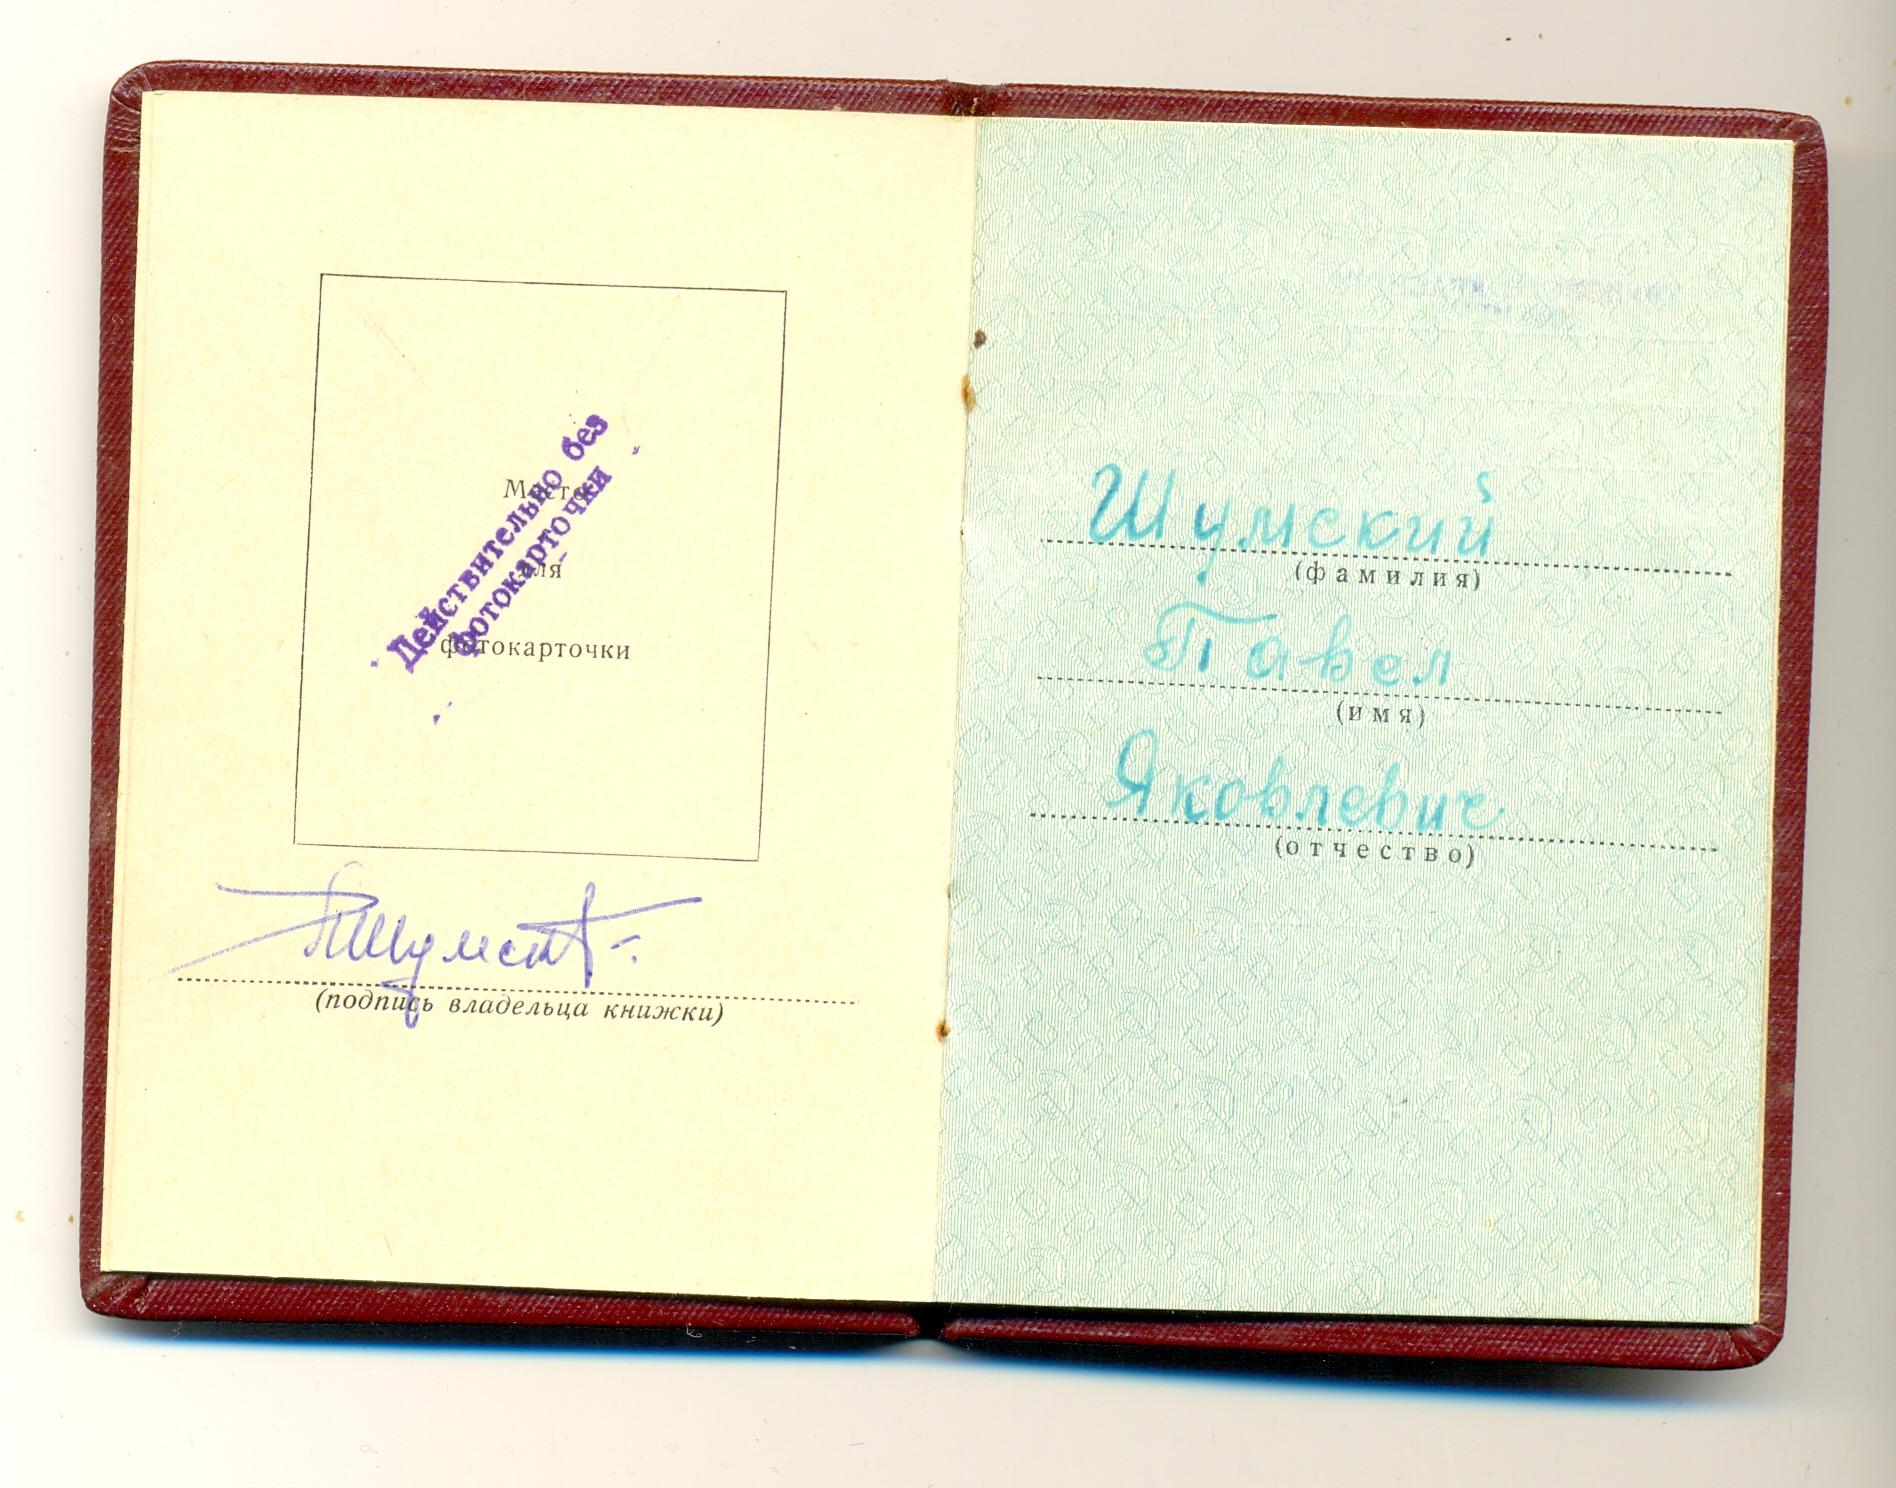 Действительно без
фотокарточки
Место
для
фотокарточки
(подпись владельца книжки)
Шумский
(фамилия)
Павел
(имя)
Яковлевич
(отчество)